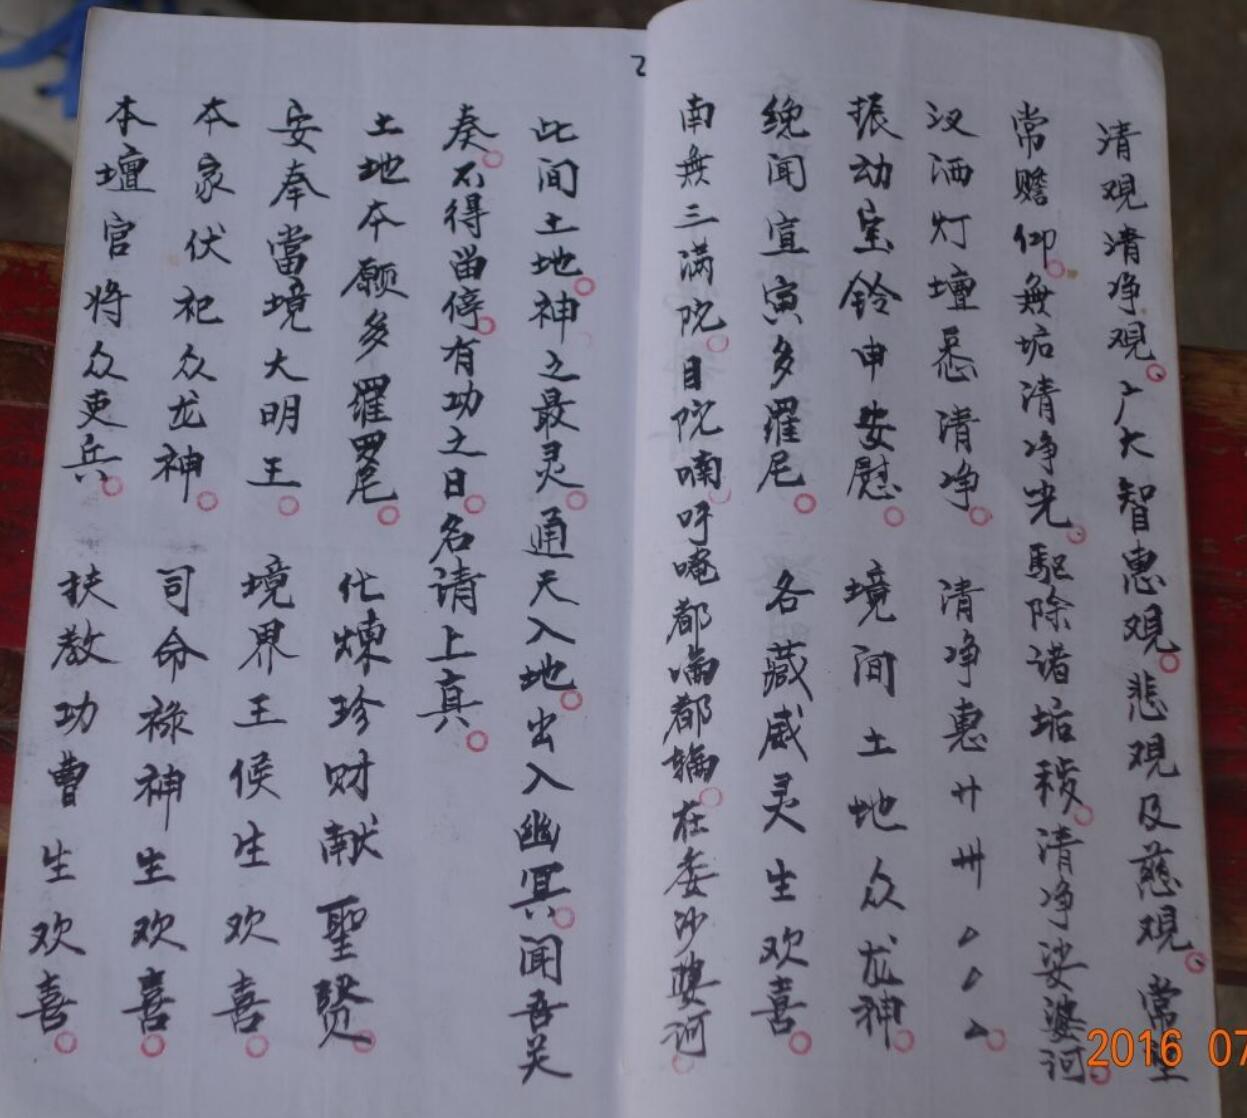 清观清净观。广大智惠观。悲观及慈观。常
常赡仰。無垢清净光。駈除诸垢秽。清净娑婆诃。
汉洒灯壇悉清净。清净惠廾卅
振动宝铃申安慰。境间土地众龙神。
绕闻宣寅多羅尼。各藏威灵生欢喜。
南無三满院。目院喃。吽唵都喃都。在委沙婆诃。
2
此间土地。神之最灵。通天入地。出入幽冥。闻吾关
奏。不得留停。有功之日。名请上真。
土地本願多羅尼。化煉珍财献聖贤。
安奉當境大明王。境界王候生欢喜。
本家伏祀众龙神。司命禄神生欢喜。
本壇官将众吏兵。扶教功曹生欢喜。
2016 07